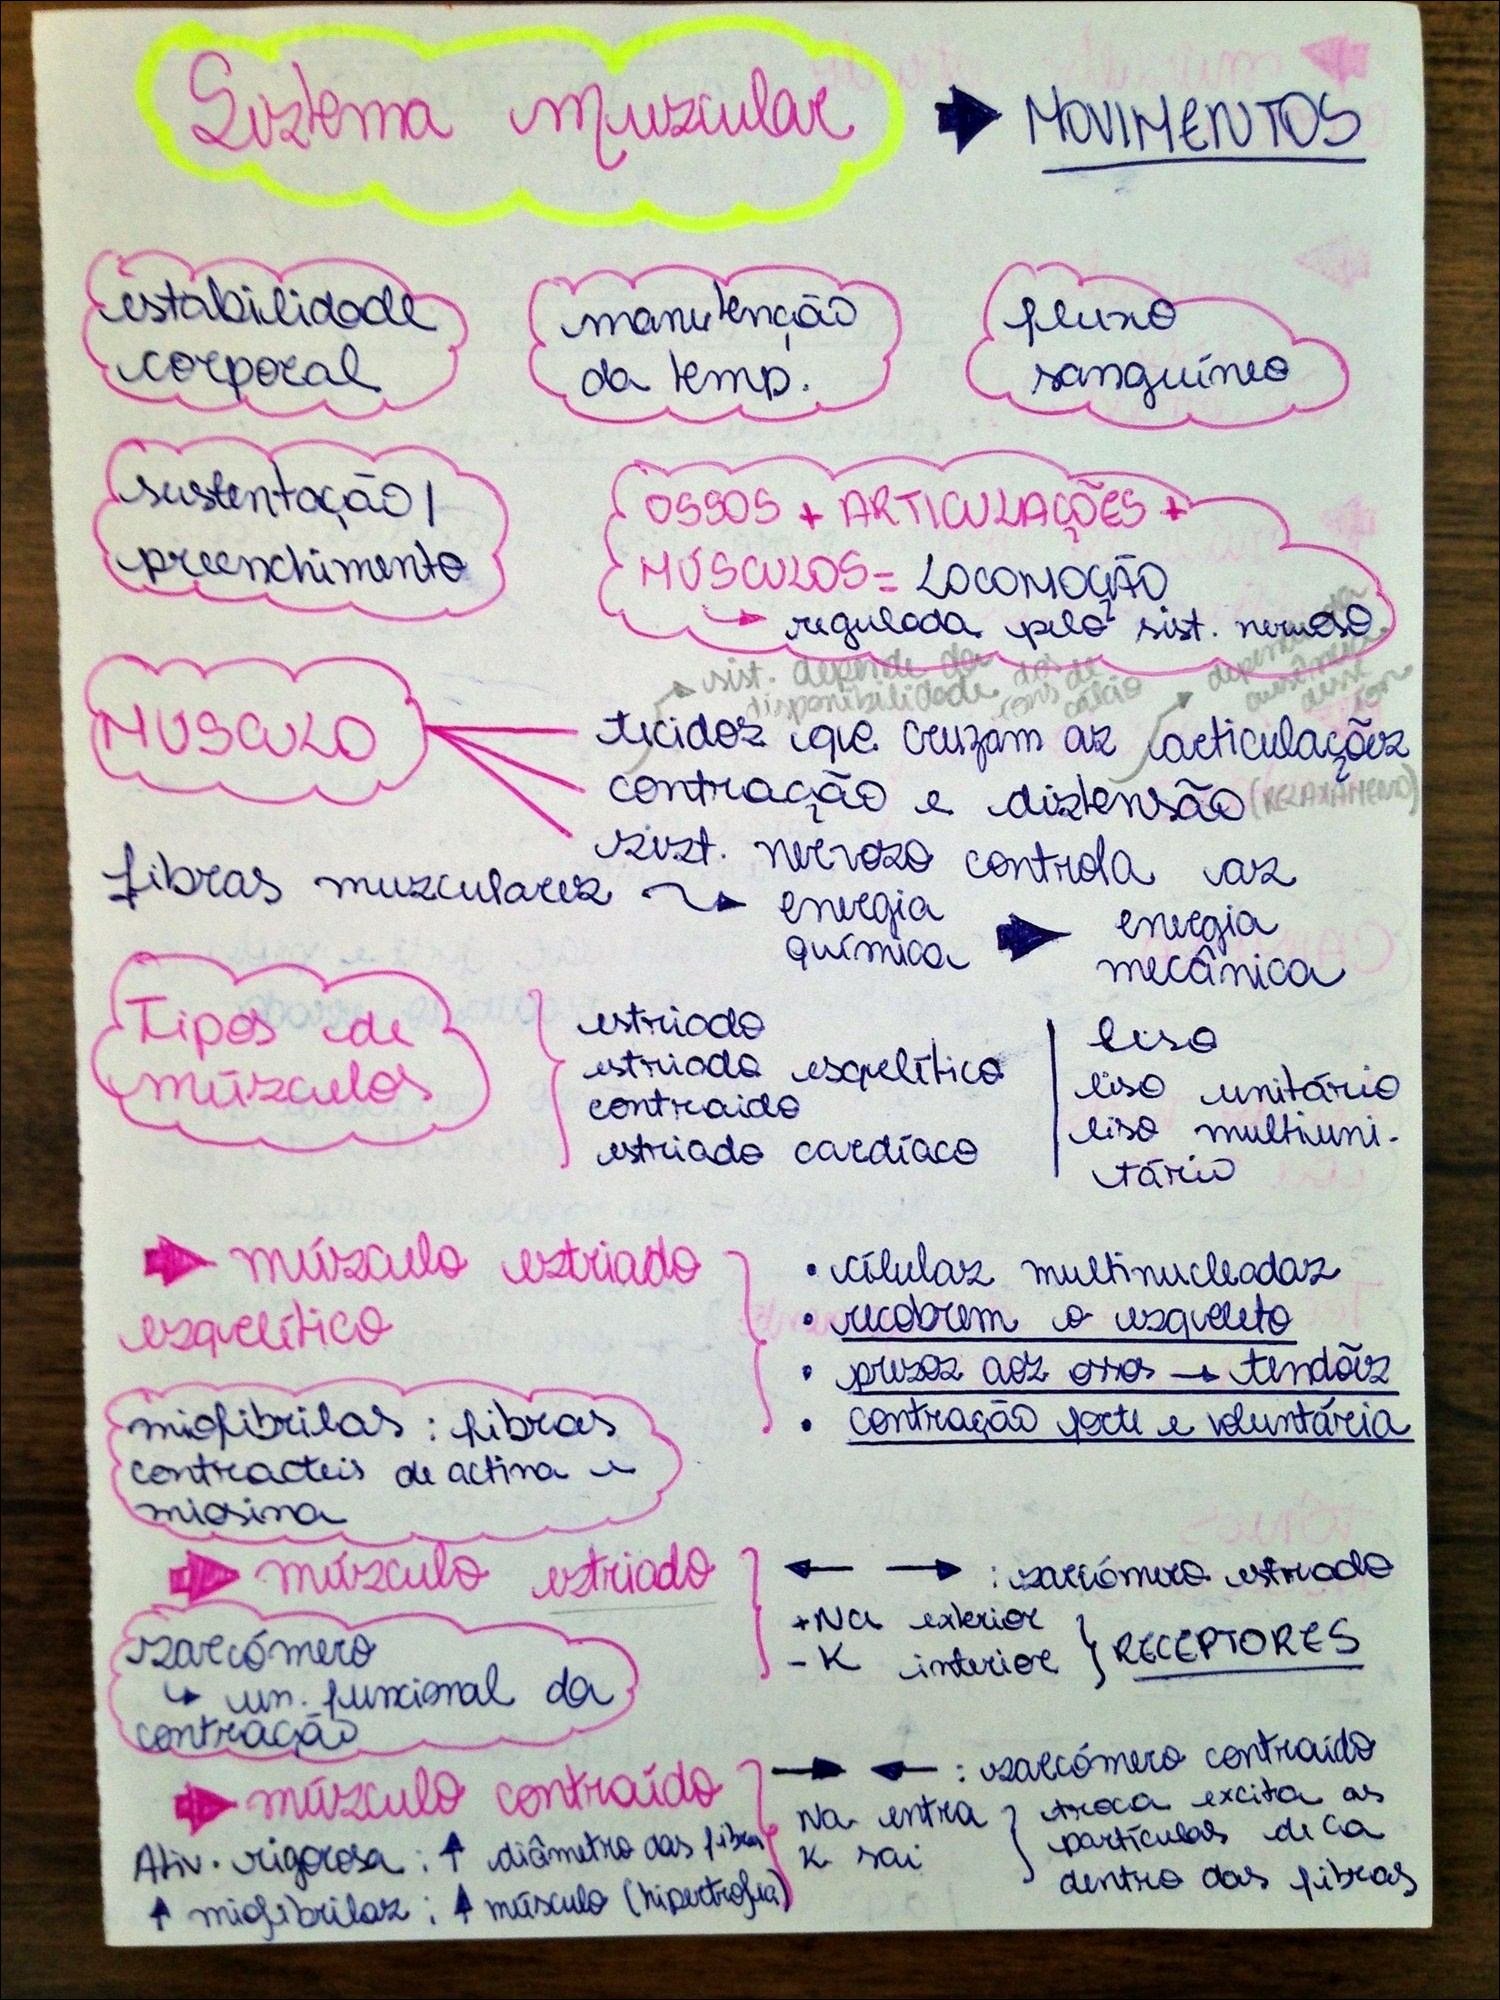 Sistema muscular → MOVIMENTOS
estabilidade
corporal
manutenção
da temp.
fluxo
sanguíneo
sustentação/
preenchimento
OSSOS + ARTICULAÇÕES +
MÚSCULOS = LOCOMOÇÃO
↳ regulada pelo sist. nervoso
sist. depende da
disponibilidade dos
íons de
cálcio
MÚSCULO
tecidos que cruzam as articulações
contração e distensão (RELAXAMENTO)
sist. nervoso controla as
fibras musculares → energia química → energia mecânica
Tipos de
músculos
estriado
estriado esquelítico
contraido
estriado cardíaco
liso
liso unitário
liso multiuni-
tário
→ músculo estriado
esquelítico
• células multinucleadas
• recobrem o esqueleto
• presos aos ossos → tendões
• contração forte e voluntária
miofibrilas: fibras
contracteis de actina e
miosina
→ músculo estriado
← → : sarcómero estriado
+Na exterior
-K interior } RECEPTORES
sarcómero
↳ un. funcional da
contração
→ músculo contraído
→ ← : sarcómero contraído
Na entra
K sai
troca excita as
partículas de Ca
dentro das fibras
Ativ. rigorosa: ↑ diâmetro das fibras
↑ miofibrilas: ↑ músculo (hipertrofia)